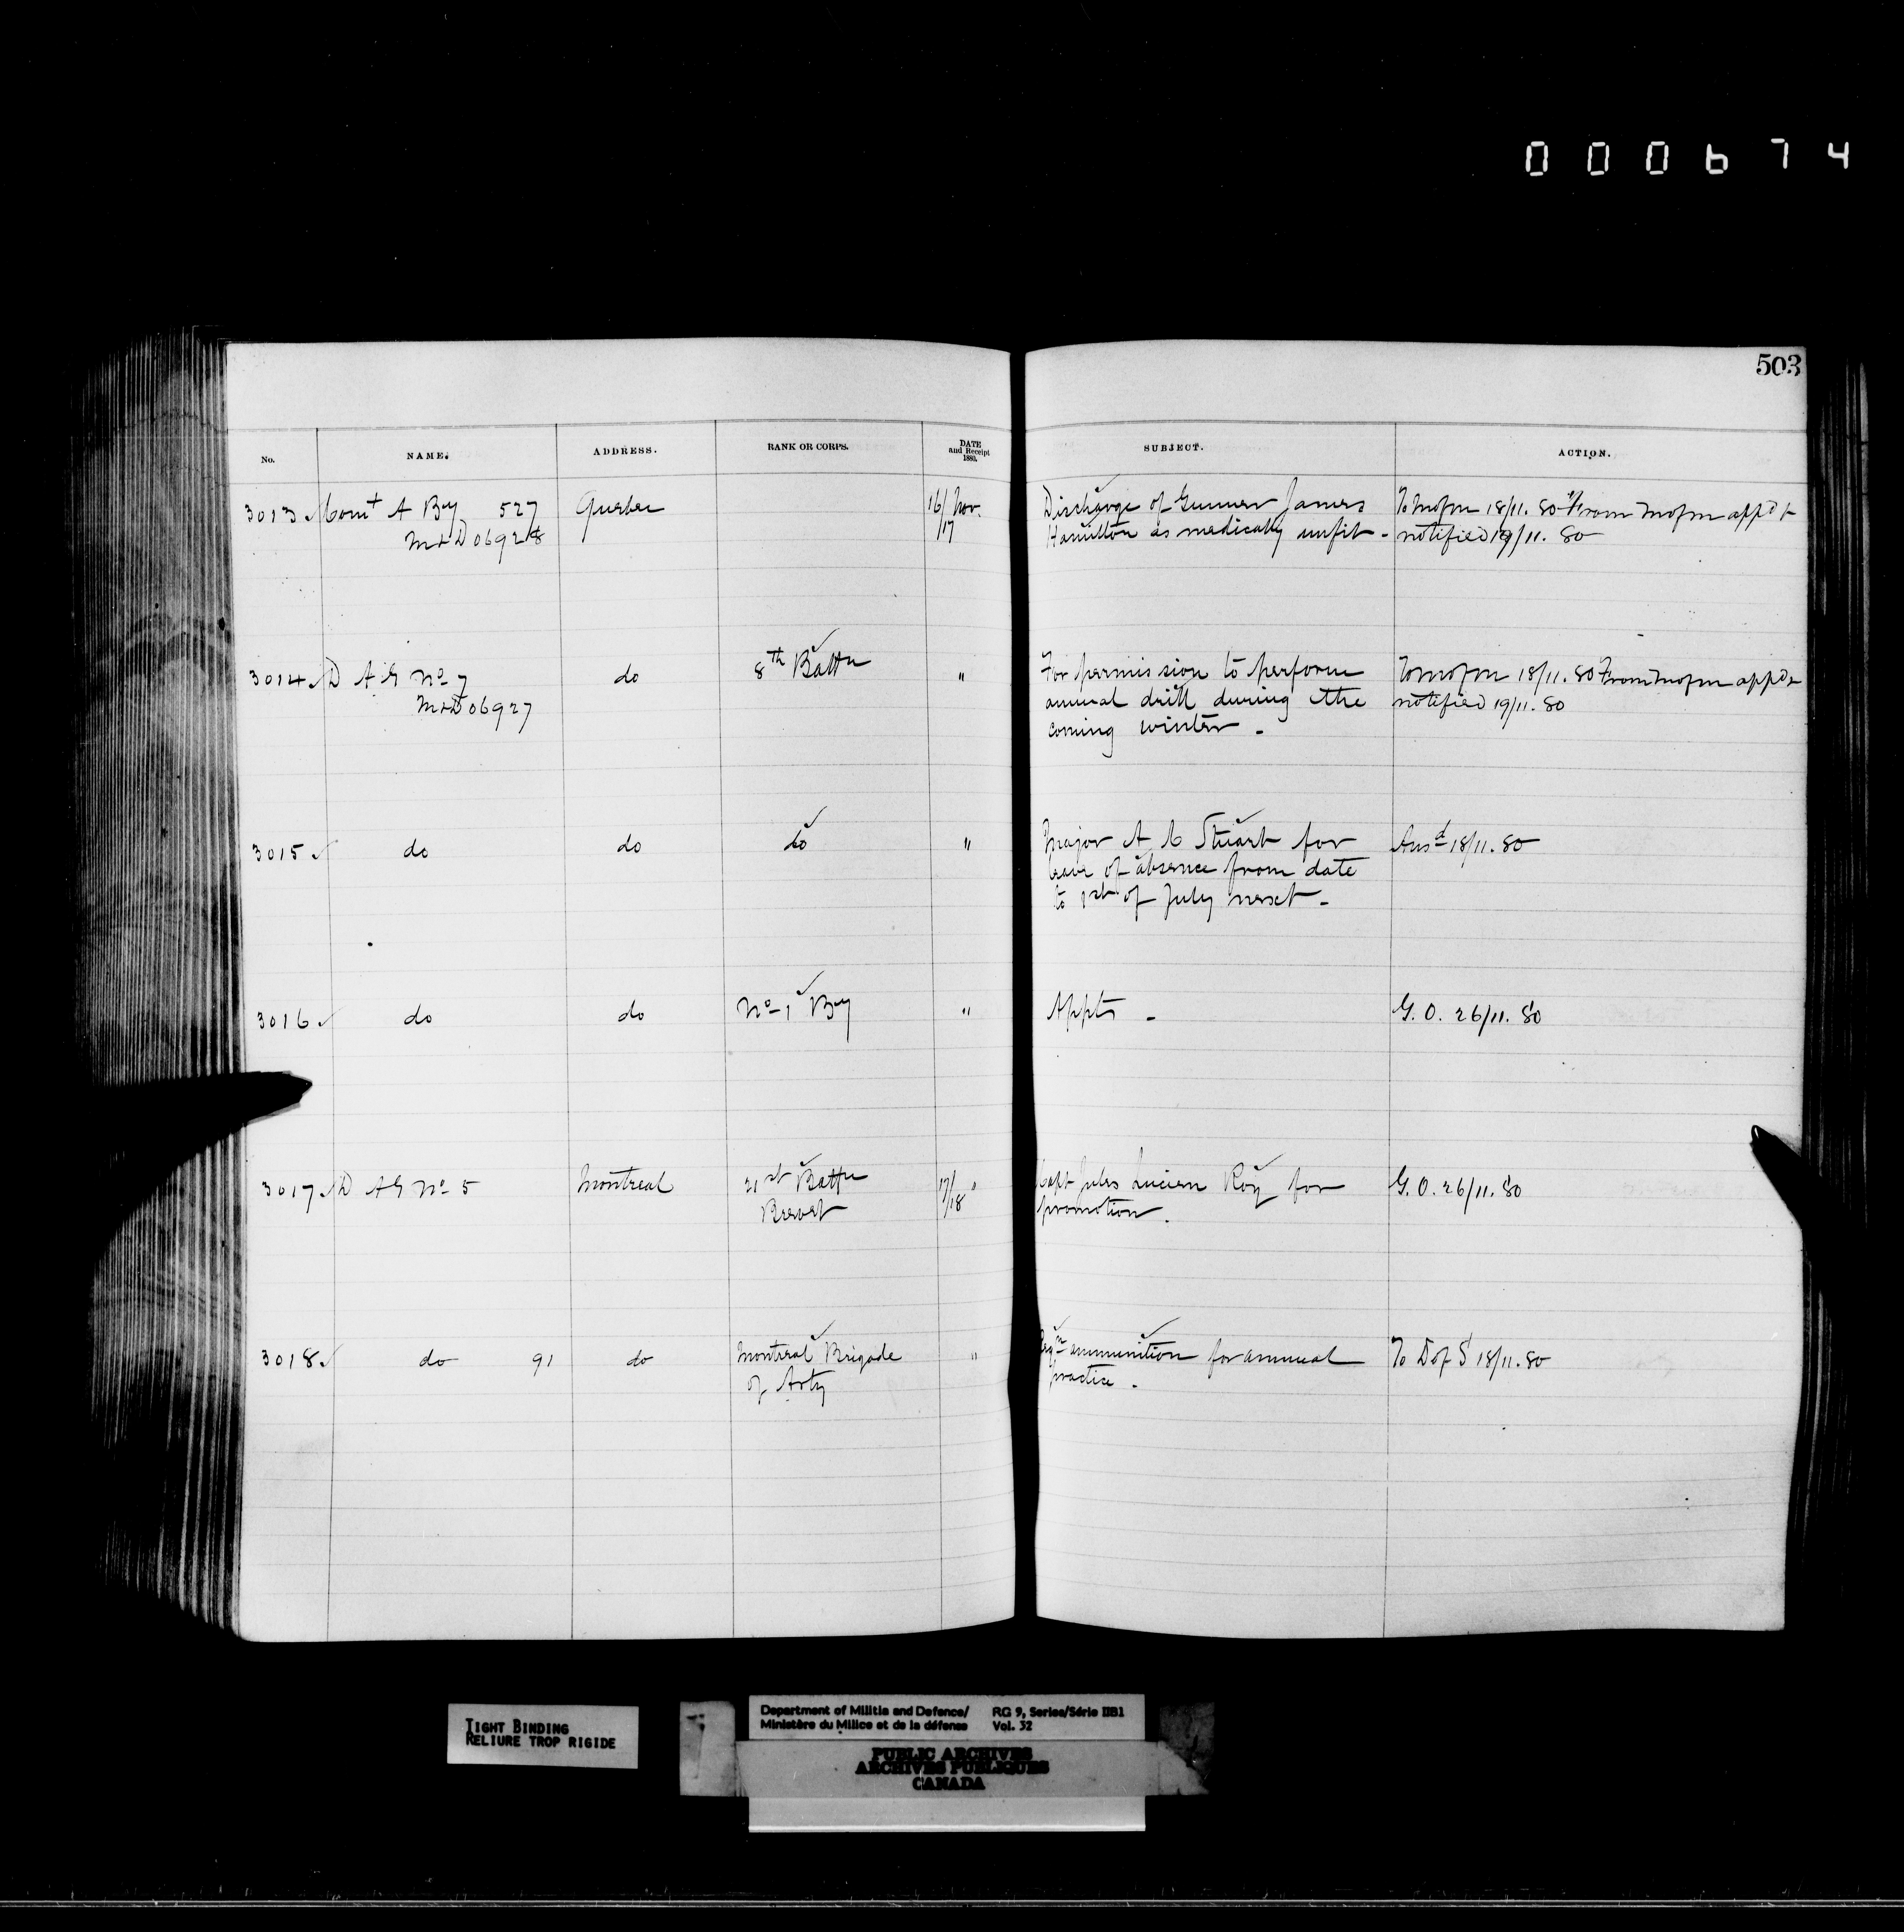 000674
503
No. NAME. ADDRESS. RANK OR CORPS. DATE and Receipt 1880. SUBJECT. ACTION.
3013 Comt A By 527 Quebec 16/17 Nov. Discharge of Gunner James To M of M 18/11.80 From M of M appd &
M & D 06928 Hamilton as medically unfit - notified 19/11. 80
3014 D A G No 7 do 8th Battn " For permission to perform To M of M 18/11.80 From M of M appd &
M & D 06927 annual drill during the notified 19/11.80
coming winter -
3015 do do do " Major A C Stuart for Ansd 18/11.80
leave of absence from date
to 1st of July next -
3016 do do No 1 By " Appts - G. O. 26/11.80
3017 D A G No 5 Montreal 21st Battn 17/18 " Capt Jules Lucien Roy for G. O. 26/11.80
Brevet promotion.
3018 do 91 do Montreal Brigade " Reqn ammunition for annual To D of S 18/11.80
of Arty practice -
TIGHT BINDING
RELIURE TROP RIGIDE
Department of Militia and Defence/ RG 9, Series/Série IIB1
Ministère du Milice et de la défense Vol. 32
PUBLIC ARCHIVES
ARCHIVES PUBLIQUES
CANADA